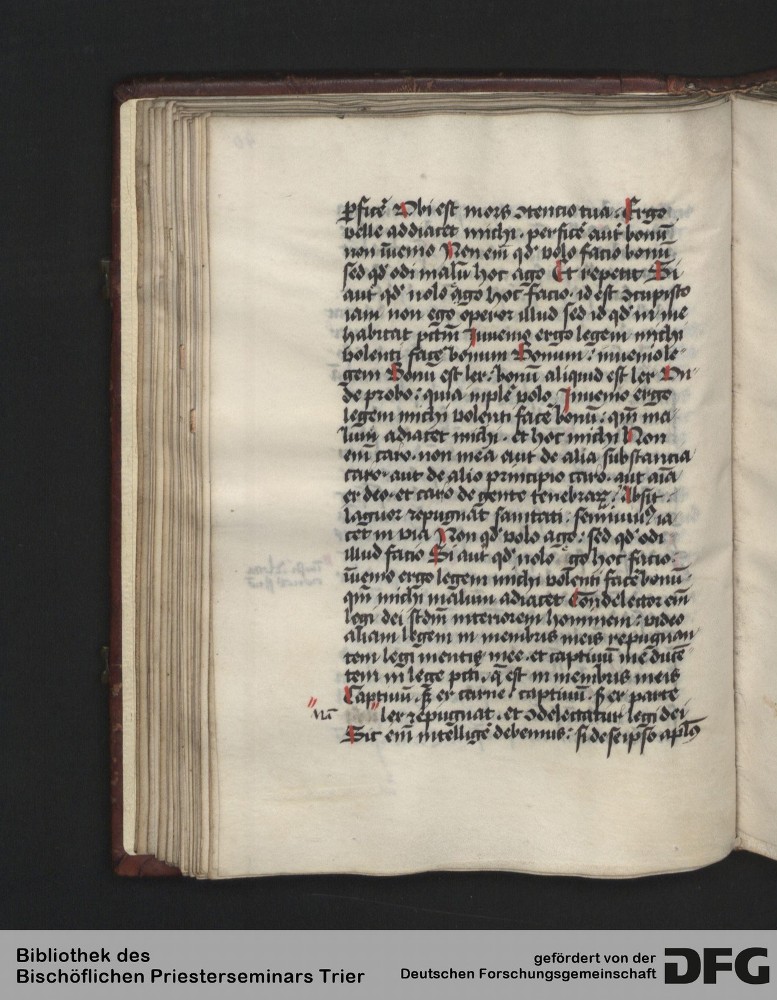 ꝑficē Vbi est mors ꝯtencio tua . Ergo
velle addiacet michi . perficē aut bonū
non īuenio Non em̄ qd' volo facio bonū
sed qd' odi malū hoc ago Et repetit Si
aut qd' nolo ago hoc facio . id est ꝯcupisco
iam non ego operor illud sed id qd' in me
habitat pctm̄ Inuenio ergo legem michi
volenti facē bonum Bonum : inuenio le
gem Bonū est lex : bonū aliquid est lex Vn
de probo : quia inplē volo Inuenio ergo
legem michi volenti facē bonū : qm̄ ma
lum adiacet michi . et hoc michi Non
em̄ caro . non mea aut de alia substancia
caro . aut de alio principio caro . aut aīa
ex deo . et caro de gente tenebraꝝ . Absit .
laguor repugnat sanitati . semiuiuꝯ ia
cet in via Non qd' volo ago : sed qd' odi
illud facio Si aut qd' nolo ago hoc facio .
īuenio ergo legem michi volenti facē bonū .
qm̄ michi malum adiacet Condelector em̄
legi dei scdm̄ interiorem hominem : video
aliam legem in membris meis repugnan
tem legi mentis mee . et captiuū me ducē
tem in lege pcti . q̄ est in membris meis
Captiuū . sꝫ ex carne . captiuū . sꝫ ex parte
lex repugnat . et ꝯdelectatur legi dei
Sic em̄ intelligē debemus : si de seipso apl'us
Bibliothek des
Bischöflichen Priesterseminars Trier
gefördert von der
Deutschen Forschungsgemeinschaft
DFG